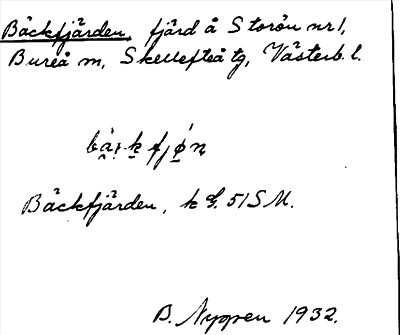 Bäckfjärden, fjärd å Storön nr 1,
Bureå sn, Skellefteå tg, Västerb. l.
Bäckfjärden, k 51 S M.
B. Nygren 1932.